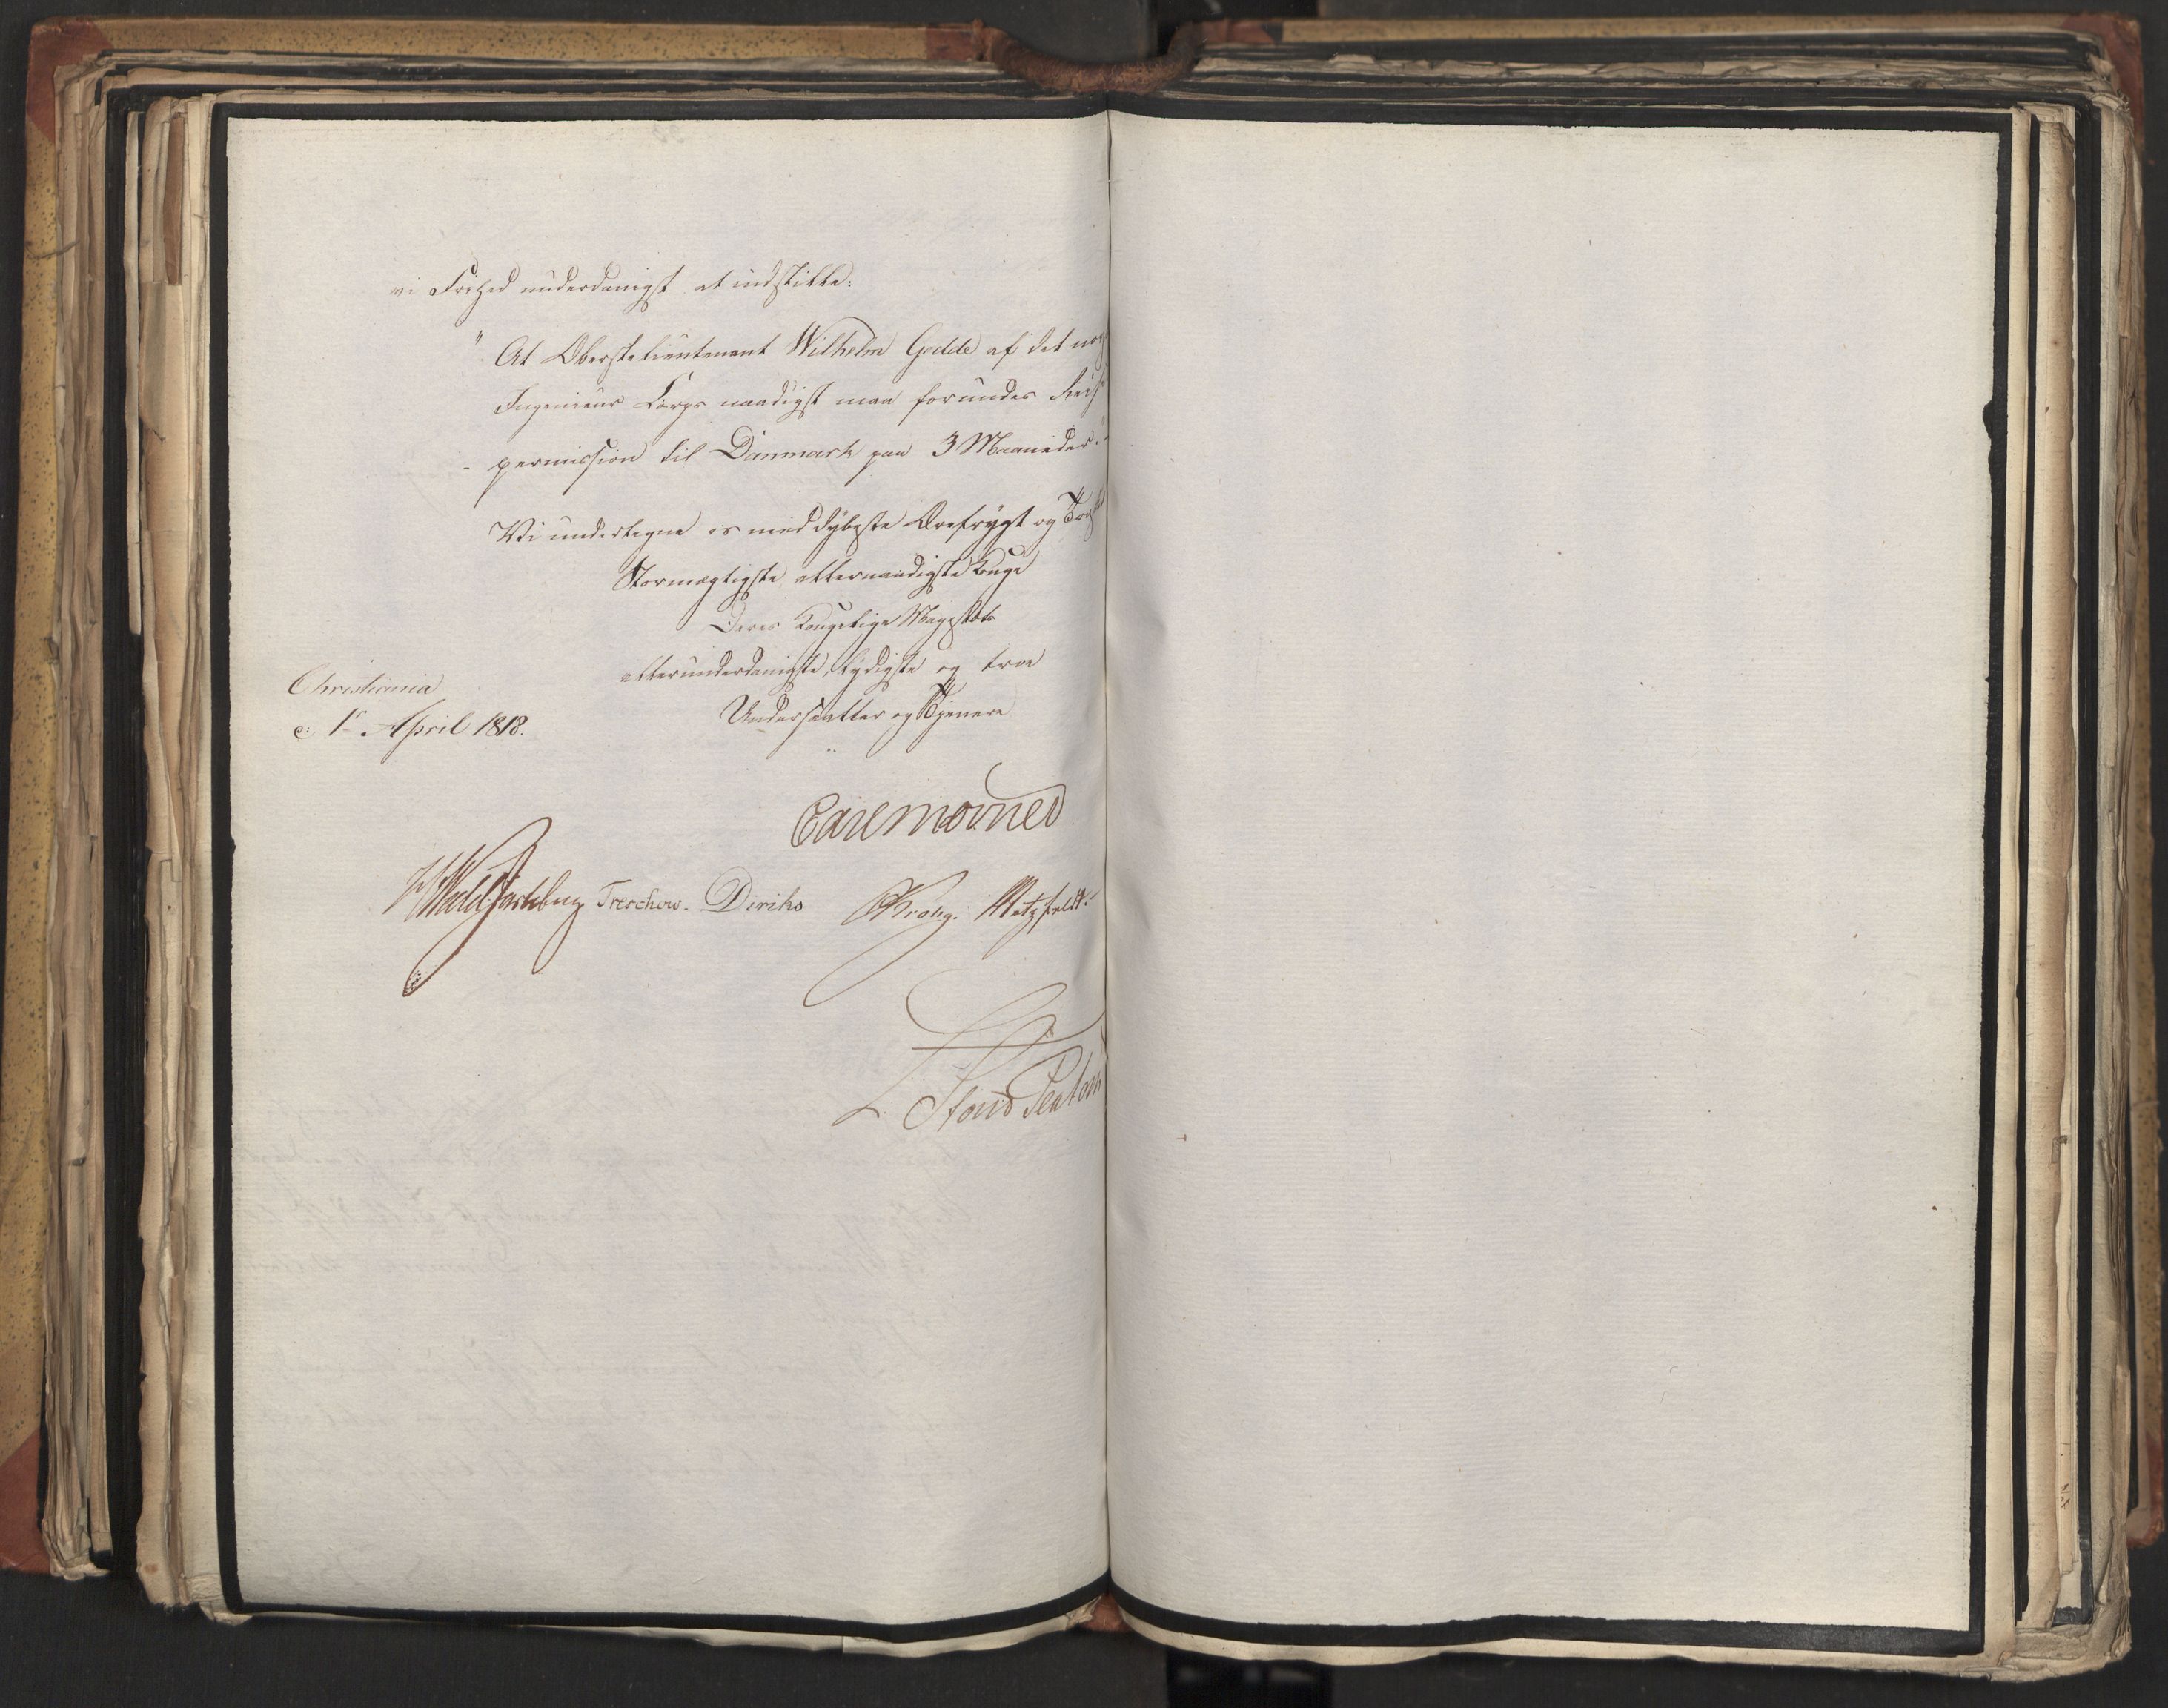 vi Frihed underdanigst at indstille:
" At Oberstelieutenant Wilhelm Gedde af det
Ingenieur Corps naadigst maa forundes Reise
- permission til Danmark paa 3 Maaneder."
Vi undertegne os med dybeste Ærefrygt og
Stormægtigste allernaadigste Konge
Deres Kongelige Majestæts
allerunderdanigste, lydigste og troe
Undersaatter og Tjenere
Christiania
d: 1ste April 1818.
Carl Mörner
HWedelJarlsberg Treschow. Diriks CKrohg. Motzfeldt.
L. Stoud Platou